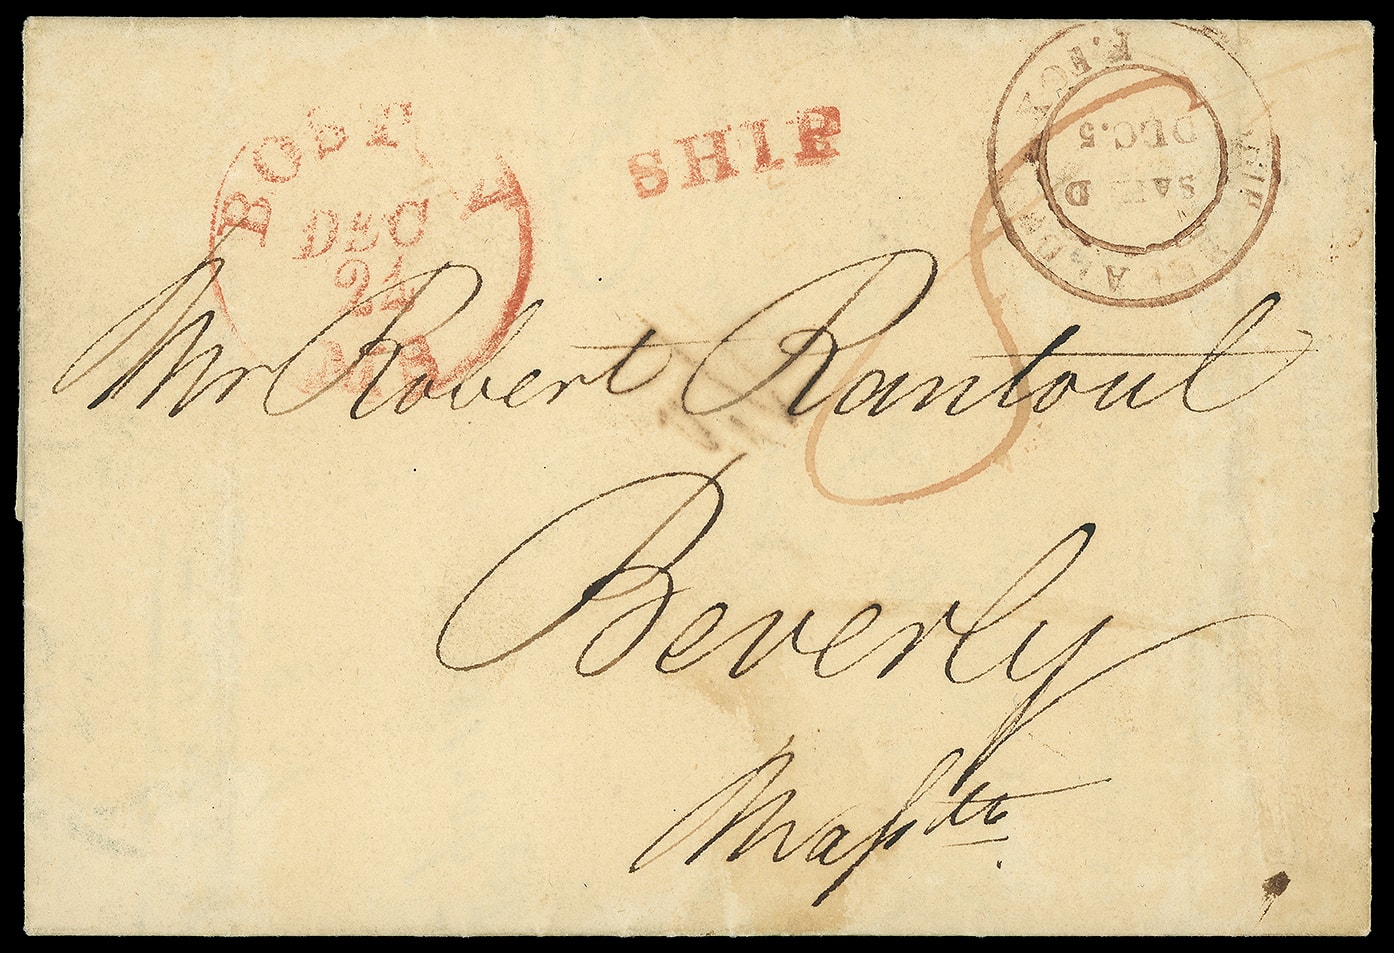 BOST
DEC
24
MS
SHIP
F. FOX
SHIP
SAIL D
DEC. 5
Mr Robert Rantoul
Beverly
Maſstts.
8